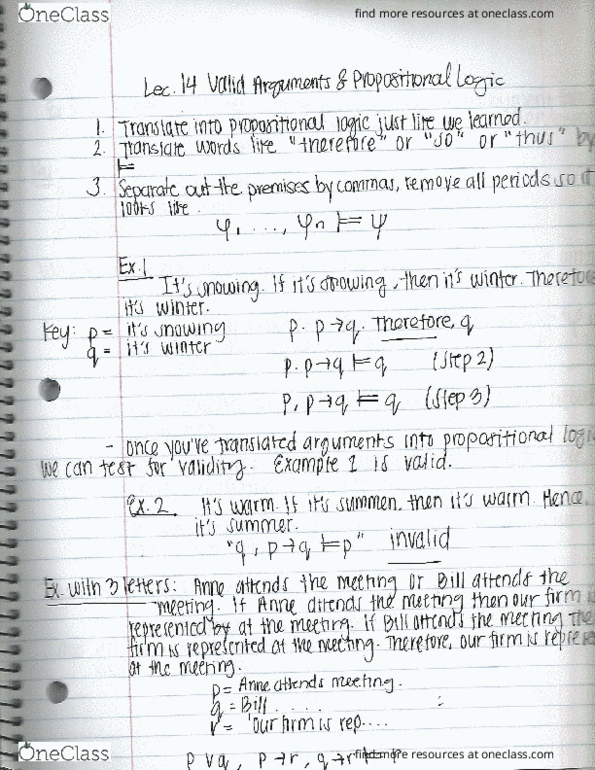 OneClass
find more resources at oneclass.com
Lec. 14 Valid Arguments & Propositional Logic
1. Translate into propositional logic just like we learned.
2. Translate words like "therefore" or "so" or "thus" by
⊨
3. Separate out the premises by commas, remove all periods so it
looks like.
φ, ..., φn ⊨ ψ
Ex. 1
It's snowing. If it's snowing, then it's winter. Therefore
it's winter.
Key: p = it's snowing
q = it's winter
p. p→q. Therefore, q
p. p→q ⊨ q (Step 2)
p, p→q ⊨ q (Step 3)
- once you've translated arguments into propositional logic
we can test for validity. Example 1 is valid.
Ex. 2. It's warm. If it's summer, then it's warm. Hence,
it's summer.
"q, p→q ⊨ p" invalid
Ex. with 3 letters: Anne attends the meeting or Bill attends the
meeting. If Anne attends the meeting then our firm is
represented by at the meeting. If Bill attends the meeting the
firm is represented at the meeting. Therefore, our firm is repres
at the meeting.
p = Anne attends meeting.
q = Bill . . . . .
r = 'our firm is rep....
p ∨ q, p→r, q→r
OneClass
find more resources at oneclass.com